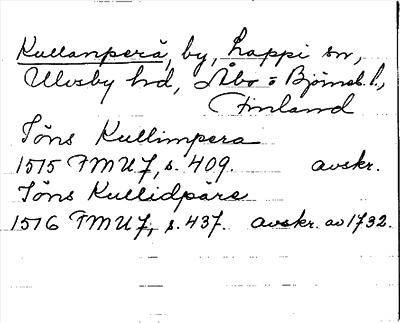 Kullanperä, by, Lappi sn,
Ulvsby hd, Åbo o Björneb. l.,
Finland
Jöns Kullimpera
1515 FMU 7, s. 409. avskr.
Jöns Kullidpäre
1516 FMU 7, s. 437. avskr. av 1732.